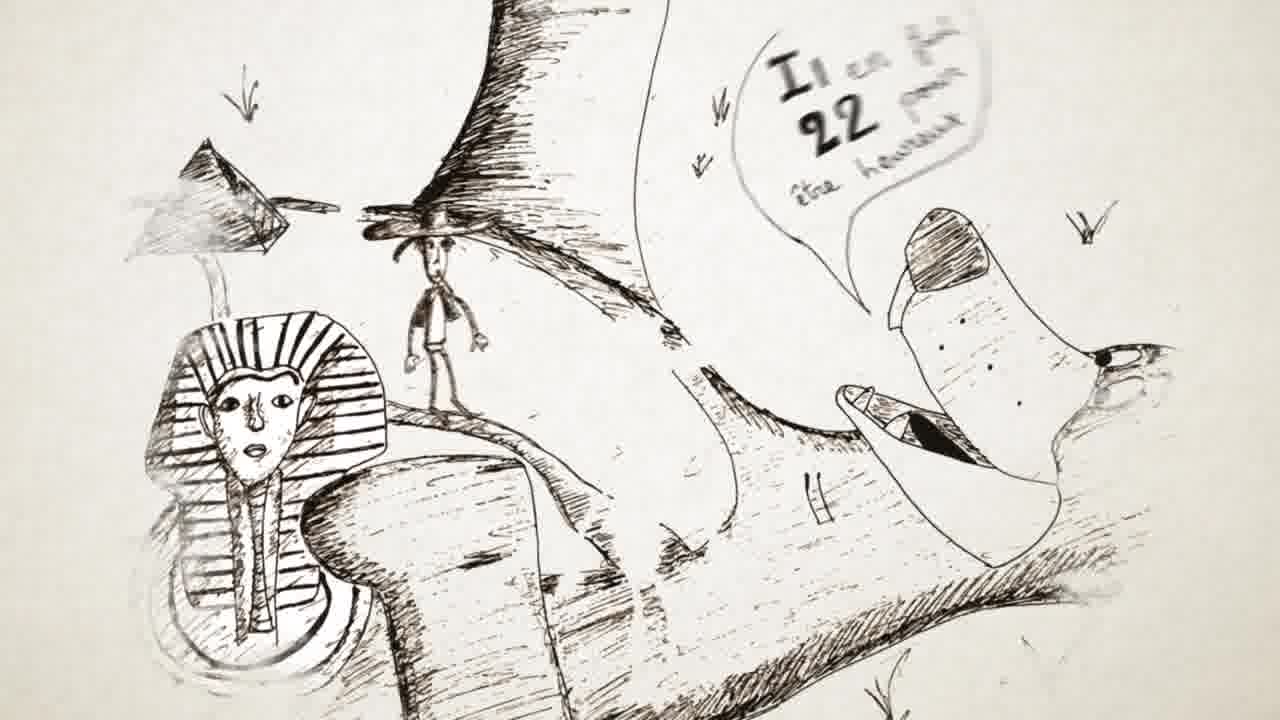 Il en
22 pour
être heureux